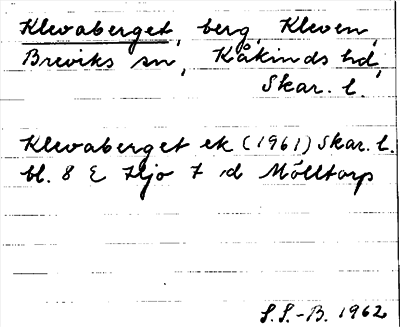 Klevaberget, berg, Kleven,
Breviks sn, Kåkinds hd,
Skar. l.
Klevaberget ek (1961) Skar. l.
bl. 8 E Hjo 7 d Mölltorp
S.S.-B. 1962